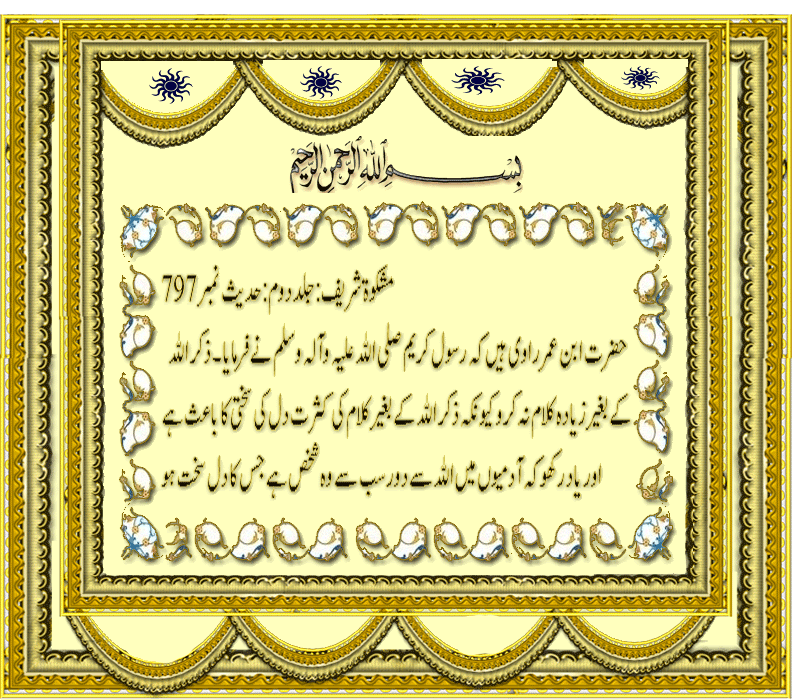 بسم اللہ الرحمن الرحیم
مشکوۃ شریف: جلد دوم: حدیث نمبر 797
حضرت ابن عمر راوی ہیں کہ رسول کریم صلی اللہ علیہ وآلہ وسلم نے فرمایا۔ ذکر اللہ
کے بغیر زیادہ کلام نہ کرو کیونکہ ذکر اللہ کے بغیر کلام کی کثرت دل کی سختی کا باعث ہے
اور یاد رکھو کہ آدمیوں میں اللہ سے دور سب سے وہ شخص ہے جس کا دل سخت ہو